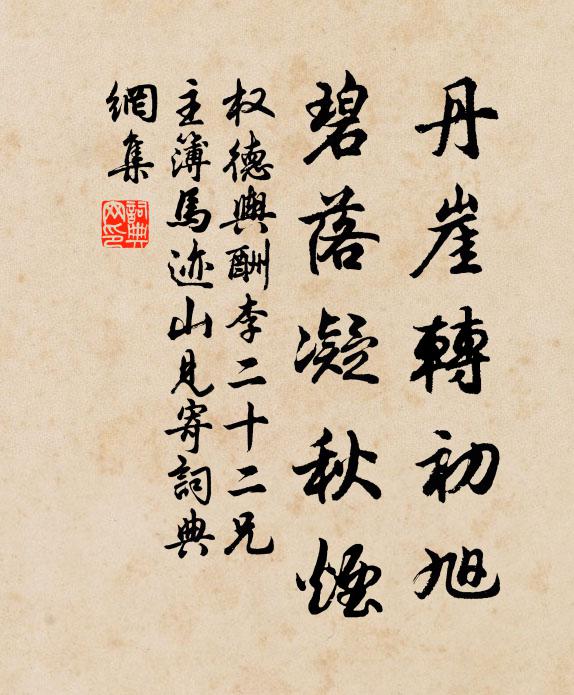 丹崖轉初旭
碧落凝秋煙
权德輿酬李二十二兄
主簿馬迹山見寄詞典
網集
詞典
文印